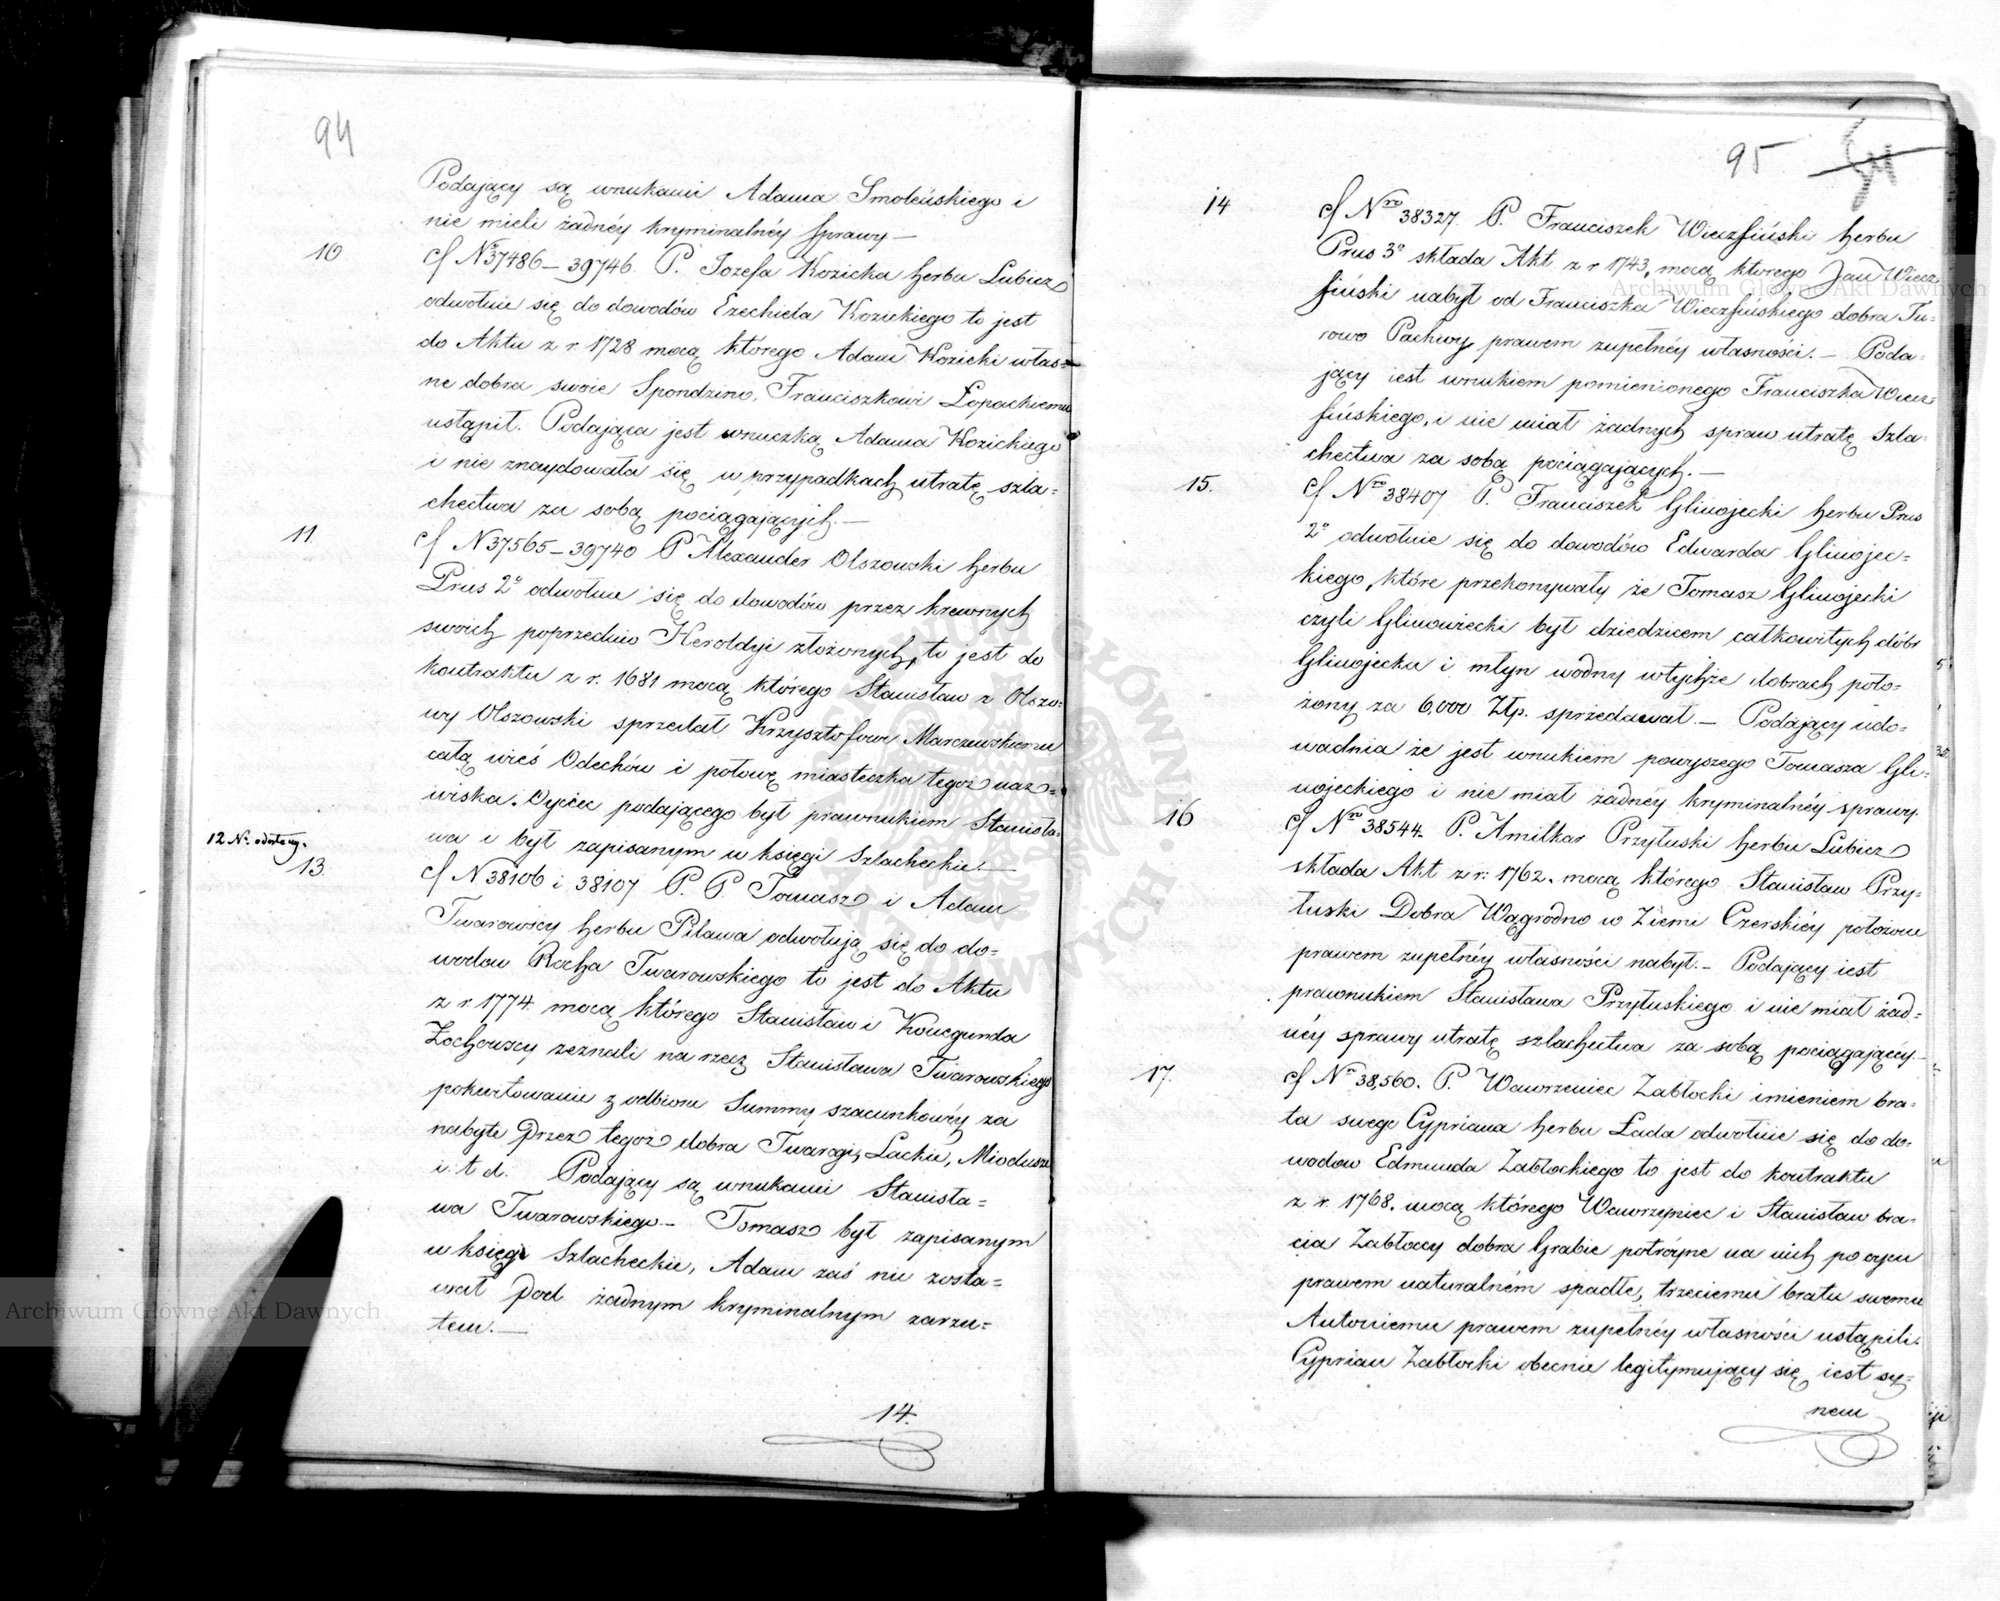 94
Podający są wnukami Adama Smoleńskiego i
nie mieli żadnéy kryminalnéy sprawy —
10.
ad N 37486 — 39746. P. Jozefa Kozicka herbu Lubicz
odwołuie się do dowodów Ezechiela Kozickiego to jest
do Aktu z r. 1728 mocą którego Adam Kozicki włas=
ne dobra swoie Spondzino, Franciszkowi Łopackiemu
ustąpił. Podająca jest wnuczką Adama Kozickiego
i nie znaydowała się w przypadkach utratę szla=
chectwa za sobą pociągających. —
11.
ad N 37565 — 39740 P Alexander Olszowski herbu
Prus 2º odwołuie się do dowodów przez krewnych
swoich poprzednio Heroldyi złożonych, to jest do
kontraktu z r. 1681 mocą którego Stanisław z Olszo=
wy Olszowski sprzedał Krzysztofowi Marczewskiemu
całą wieś Odechów i połowę miasteczka tegoż naz=
wiska. Oyciec podającego był prawnukiem Stanisła=
wa i był zapisanym w księgi Szlacheckie. —
12 Nº odesłany.
13.
ad N 38106 i 38107 P. P. Tomasz i Adam
Twarowscy herbu Pilawa odwołują się do do=
wodow Rocha Twarowskiego to jest do Aktu
z r 1774 mocą którego Stanisław i Konegunda
Zochowscy zeznali na rzecz Stanisława Twarowskiego
pokwitowanie z odbioru Summy szacunkowéy za
nabyte przez tegoż dobra Twarogi, Lackie, Miodusze
i. t d. Podający są wnukami Stanisła=
wa Twarowskiego — Tomasz był zapisanym
w księgi Szlacheckie, Adam zaś nie zosta=
wał pod żadnym kryminalnym zarzu=
tem. —
14.
95
14
ad Nro 38327. P. Franciszek Wieczfiński herbu
Prus 3º składa Akt z r 1743, mocą ktorego Jan Wiecz
fiński nabył od Franciszka Wieczfińskiego dobra Tu=
rowo Pachwy prawem zupełnéy własności. — Poda=
jący iest wnukiem pomienionego Franciszka Wiecz=
fińskiego, i nie miał żadnych spraw utratę Szla=
chectwa za sobą pociągających. —
15.
ad Nro 38407 P. Franciszek Glinojecki herbu Prus
2º odwołuie się do dowodów Edwarda Glinojec=
kiego, które przekonywały że Tomasz Glinojecki
czyli Glinowiecki był dziedzicem całkowitych dóbr
Glinojecka i młyn wodny wtychże dobrach poło=
żony za 6,000 Złp. sprzedawał. — Podający udo=
wadnia że jest wnukiem powyszego Tomasza Gli=
nojeckiego i nie miał żadnéy kryminalnéy sprawy.
16
ad Nro 38544. P. Amilkar Przyłuski herbu Lubicz
składa Akt z r: 1762. mocą którego Stanisław Przy=
łuski Dobra Wągrodno w Ziemi Czerskiéy położone
prawem zupełnéy własności nabył. — Podający iest
prawnukiem Stanisława Przyłuskiego i nie miał żad=
néy sprawy utratę szlachectwa za sobą pociągającéy. —
17.
ad Nro 38,560. P. Wawrzeniec Zabłocki imieniem bra=
ta swego Cypriana herbu Łada odwołuie się do do=
wodow Edmunda Zabłockiego to jest do kontraktu
z r. 1768. mocą którego Wawrzyniec i Stanisław bra=
cia Zabłoccy dobra Grabie potróyne na nich po oycu
prawem naturalném spadłe, trzeciemu bratu swemu
Antoniemu prawem zupełnéy własności ustąpili.
Cyprian Zabłocki obecnie legitymujący się iest sy=
nem
Archiwum Główne Akt Dawnych
Archiwum Główne Akt Dawnych